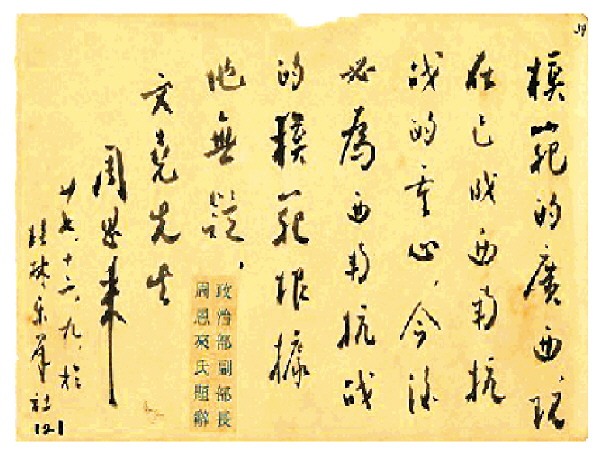 模範的廣西,现
在已成西南抗
战的重心,今後
必為西南抗战
的模範根據
地無疑,
文堯先生
周恩来
廿七、十二、九、於
桂林乐群社
121
政治部副部長
周恩來氏題辭